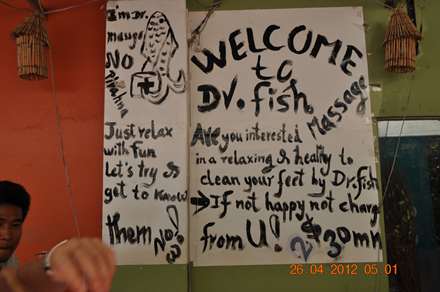 I'm Dr.
mauga
NO
Just relax
with fun
Let's try &
get to know
them Now!
WELCOME
to
Dr. fish
Massage
Are you interested
in a relaxing & healty to
clean your feet by Dr.fish
→ If not happy not charge
from U! 2$ 30mn
26 04 2012 05 01